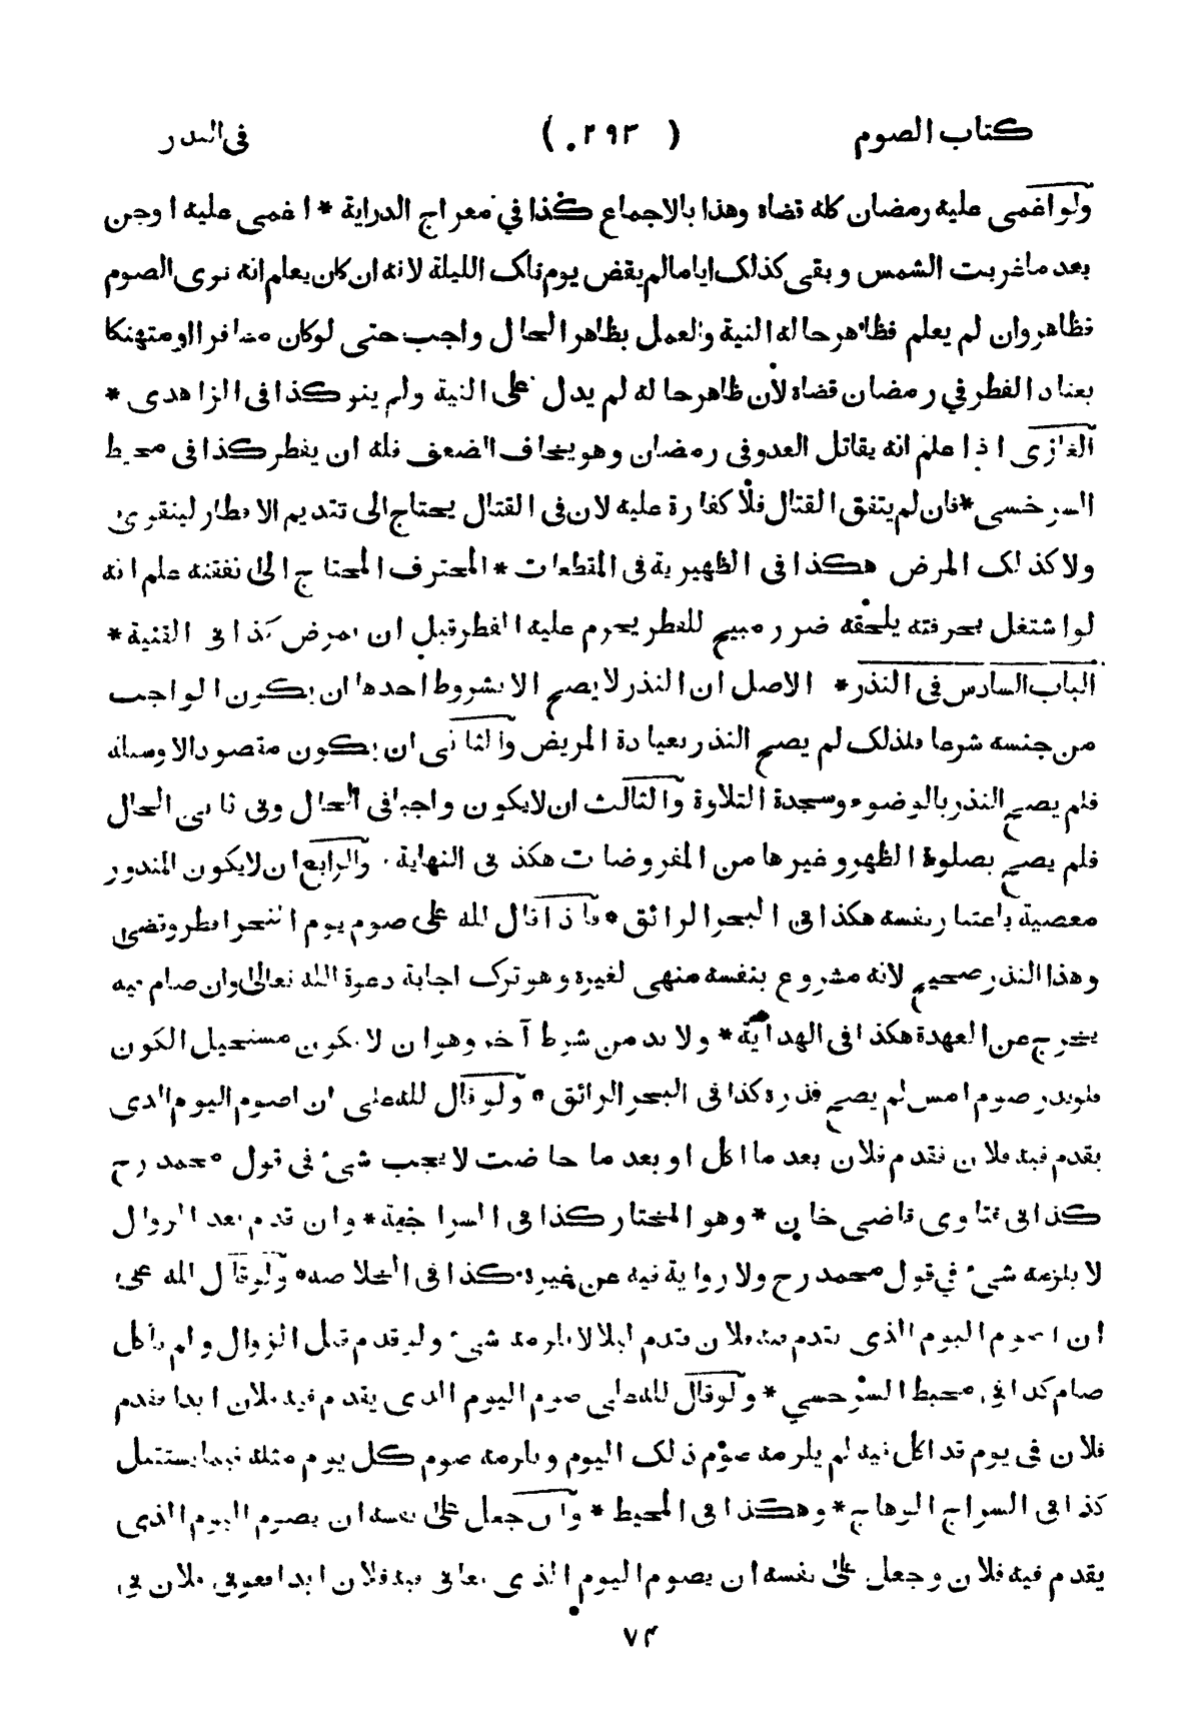 كتاب الصوم ( ٢٩٣ ) فى النذر
ولو اغمى عليه رمضان كله قضاه وهذا بالاجماع كذا في معراج الدراية * اغمى عليه او جن
بعد ما غربت الشمس وبقى كذلك اياما لم يقض يوم تلك الليلة لانه ان كان يعلم انه نوى الصوم
فظاهر وان لم يعلم فظاهر حاله النية والعمل بظاهر الحال واجب حتى لو كان مسافرا او متهتكا
يعتاد الفطر في رمضان قضاه لأن ظاهر حاله لم يدل على النية ولم ينو كذا فى الزاهدى *
الغازى اذا علم انه يقاتل العدو فى رمضان وهو يخاف الضعف فله ان يفطر كذا فى محيط
السرخسى * فان لم يتفق القتال فلا كفارة عليه لان فى القتال يحتاج الى تقديم الافطار ليتقوى
ولا كذلك المرض هكذا فى الظهيرية فى المقطعات * المحترف المحتاج الى نفقته علم انه
لو اشتغل بحرفته يلحقه ضرر مبيح للفطر يحرم عليه الفطر قبل ان يمرض كذا فى القنية *
الباب السادس فى النذر * الاصل ان النذر لا يصح الا بشروط احدها ان يكون الواجب
من جنسه شرعا فلذلك لم يصح النذر بعيادة المريض والثانى ان يكون مقصودا لا وسيلة
فلم يصح النذر بالوضوء وسجدة التلاوة والثالث ان لا يكون واجبا فى الحال وفى ثانى الحال
فلم يصح بصلوة الظهر وغيرها من المفروضات هكذا فى النهاية . والرابع ان لا يكون المنذور
معصية باعتبار نفسه هكذا فى البحر الرائق * فاذا قال لله على صوم يوم النحر افطر وقضى
وهذا النذر صحيح لانه مشروع بنفسه منهى لغيره وهو ترك اجابة دعوة الله تعالى وان صام فيه
يخرج عن العهدة هكذا فى الهداية * ولا بد من شرط آخر وهو ان لا يكون مستحيل الكون
فلو نذر صوم امس لم يصح نذره كذا فى البحر الرائق * ولو قال لله على ان اصوم اليوم الذى
يقدم فيه فلان فقدم فلان بعد ما اكل او بعد ما حاضت لا يجب شئ فى قول محمد رح
كذا فى فتاوى قاضى خان * وهو المختار كذا فى السراجية * وان قدم بعد الزوال
لا يلزمه شئ في قول محمد رح ولا رواية فيه عن غيره كذا فى الخلاصة * ولو قال لله على
ان اصوم اليوم الذى يقدم فيه فلان فقدم ليلا لا يلزمه شئ ولو قدم قبل الزوال ولم يأكل
صام كذا فى محيط السرخسي * ولو قال لله على صوم اليوم الذى يقدم فيه فلان ابدا فقدم
فلان فى يوم قد اكل فيه لم يلزمه صوم ذلك اليوم ويلزمه صوم كل يوم مثله فيما يستقبل
كذا فى السراج الوهاج * وهكذا فى المحيط * وان جعل على نفسه ان يصوم اليوم الذى
يقدم فيه فلان وجعل على نفسه ان يصوم اليوم الذى يعافى فيه فلان ابدا فعوفى فلان فى
٧٤